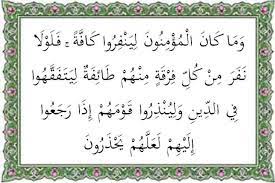 وَمَا كَانَ الْمُؤْمِنُونَ لِيَنْفِرُوا كَافَّةً ۚ فَلَوْلَا
نَفَرَ مِنْ كُلِّ فِرْقَةٍ مِنْهُمْ طَائِفَةٌ لِيَتَفَقَّهُوا
فِي الدِّينِ وَلِيُنْذِرُوا قَوْمَهُمْ إِذَا رَجَعُوا
إِلَيْهِمْ لَعَلَّهُمْ يَحْذَرُونَ